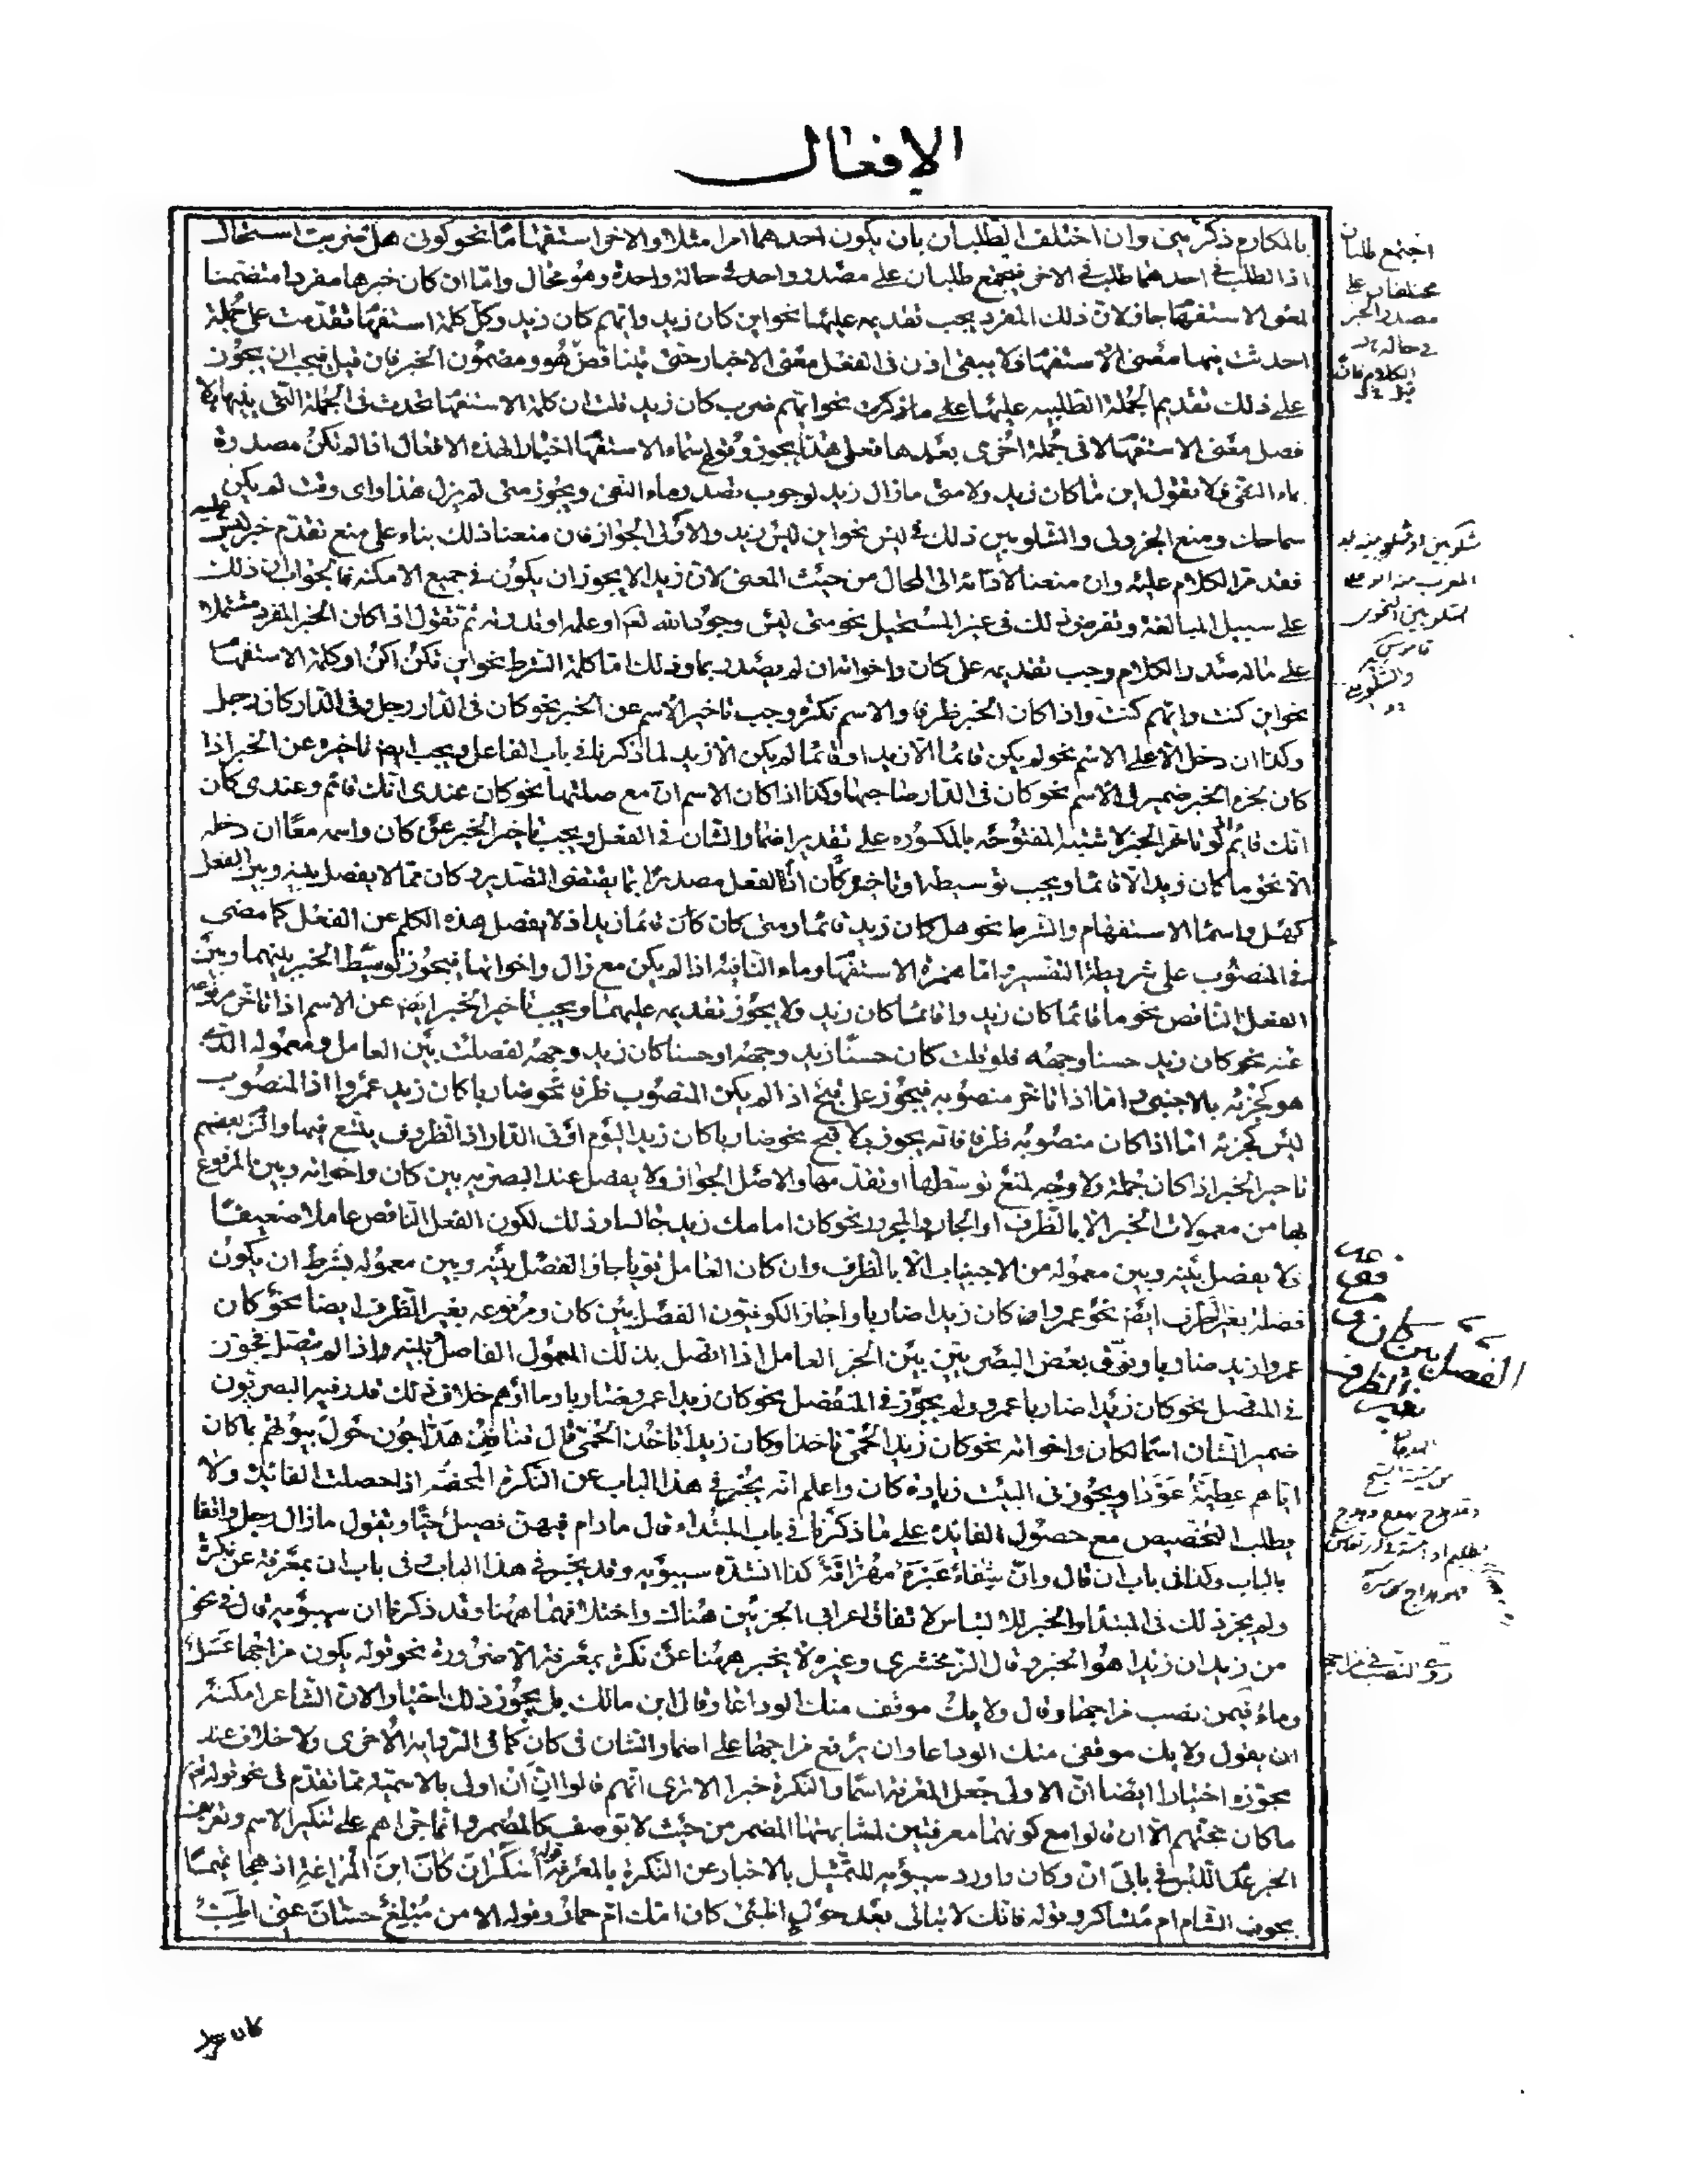 الافعال
بالمكارم ذكرينى وان اختلف الطلبان بان يكون احدهما امرا مثلا والاخر استفهاما نحو كونى هل ضربت استحال
اذا الطلب فى احدهما طلب فى الاخر فيجتمع طلبان على مصدر واحد فى حالة واحدة وهو محال واما ان كان خبرها مفردا متضمنا
لمعنى الاستفهام جاز لان ذلك المفرد يجب تقديمه عليها نحو اين كان زيد وايهم كان زيد وكل كلمة استفهام تقدمت على جملة
احدثت فيها معنى الاستفهام فلا يبقى اذن فى الفعل معنى الاخبار حتى يتناقض هو ومضمون الخبر فان قيل فيجب ان يجوز
على ذلك تقديم الجملة الطلبية عليها على ما ذكرت نحو ايهم ضرب كان زيد قلت ان كلمة الاستفهام تحدث فى الجملة التى يليها بلا
فصل معنى الاستفهام لا فى جملة اخرى بعدها فعلى هذا يجوز وقوع اسماء الاستفهام اخبارا لهذه الافعال اذا لم تكن مصدرة
بماء النفى فلا تقول اين ما كان زيد ولا متى مازال زيد لوجوب تصدر ماء النفى ويجوز متى لم يزل هذا واى وقت لم يكن
سماحك ومنع الجزولى والشلوبين ذلك فى ليس نحو اين ليس زيد والاولى الجواز فان منعنا ذلك بناء على منع تقدم خبر ليس عليه
فقد مر الكلام عليه وان منعنا لادائه الى المحال من حيث المعنى لان زيدا لا يجوز ان يكون فى جميع الامكنة فالجواب ان ذلك
على سبيل المبالغة ونفرض ذلك فى غير المستحيل نحو متى ليس وجود الله نعم او علمه او قدرته ثم نقول اذا كان الخبر المفرد مشتملا
على ما له صدر الكلام وجب تقديمه على كان واخواته ان لم يصدر بما وذلك اما كلمة الشرط نحو اين تكن اكن او كلمة الاستفهام
نحو اين كنت وايهم كنت واذا كان الخبر ظرفا والاسم نكرة وجب تاخير الاسم عن الخبر نحو كان فى الدار رجل وفى الدار كان رجل
وكذا ان دخل الا على الاسم نحو لم يكن قائما الا زيد او قائما لم يكن الا زيد لما ذكرنا فى باب الفاعل ويجب ايضا تاخيره عن الخبر اذا
كان لجزء الخبر ضمير فى الاسم نحو كان فى الدار صاحبها وكذا اذا كان الاسم ان مع صلتها نحو كان عندى انك قائم وعندى كان
انك قائم لو تاخر الخبر لاشتبه المفتوحة بالمكسورة على تقدير اضمار الشان فى الفعل ويجب تاخير الخبر عن كان واسمه معا ان دخله
الا نحو ما كان زيد الا قائما ويجب توسيطه او تاخيره كان اذا الفعل مصدرا بما يقتضى التصدير وكان مما لا يفصل بينه وبين الفعل
كهل واسماء الاستفهام والشرط نحو هل كان زيد قائما ومتى كان كان قائما زيد اذ لا يفصل هذه الكلم عن الفعل كما مضى
فى المنصوب على شريطة التفسير واما همزة الاستفهام وماء النافية اذا لم يكن مع زال واخواتها فيجوز توسيط الخبر بينهما وبين
الفعل الناقص نحو ما قائما كان زيد واقائما كان زيد ولا يجوز تقديمه عليهما ويجب تاخير الخبر ايضا عن الاسم اذا تاخر مرفوعه
عنه نحو كان زيد حسنا وجهه فلو قلت كان حسنا زيد وجهه او حسنا كان زيد وجهه لفصلت بين العامل ومعموله الذى
هو كجزئه بالاجنبى اما اذا تاخر منصوبه فيجوز على قبح اذ لم يكن المنصوب ظرفا نحو ضاربا كان زيد عمروا اذ المنصوب
ليس كجزئه اما اذا كان منصوبه ظرفا فانه يجوز بلا قبح نحو ضاربا كان زيد اليوم او فى الدار اذ الظروف يتسع فيها والتزم بعضهم
تاخير الخبر اذا كان جملة ولا وجه لمنع توسطها او تقدمها والاصل الجواز ولا يفصل عند البصرية بين كان واخواته وبين المرفوع
بها من معمولات الخبر الا بالظرف او الجار والمجرور نحو كان امامك زيد جالسا وذلك لكون الفعل الناقص عاملا ضعيفا
فلا يفصل بينه وبين معموله من الاجنبيات الا بالظرف وان كان العامل قويا جاز الفصل بينه وبين معموله بشرط ان يكون
فضلة بغير الظرف ايضا نحو عمروا كان زيد ضاربا واجاز الكوفيون الفصل بين كان ومرفوعه بغير الظرف ايضا نحو كان
عمروا زيد ضاربا وفرق بعض البصريين بين الخبر العامل اذا اتصل بذلك المعمول الفاصل بينه واذا لم يتصل فجوز
فى المتصل نحو كان زيدا ضاربا عمرو ولم يجوز فى المنفصل نحو كان زيدا عمرو ضاربا وما اوهم خلاف ذلك قدر فيه البصريون
ضمير الشان اسما لكان واخواته نحو كان زيدا الحمى تاخذ او كان زيدا تاخذ الحمى قال قنافذ هداجون حول بيوتهم بما كان
اياهم عطية عودا ويجوز فى البيت زيادة كان واعلم انه يخبر فى هذا الباب عن النكرة المحضة اذا حصلت الفائدة ولا
يطلب التخصيص مع حصول الفائدة على ما ذكرنا فى باب المبتداء قال مادام فيهن فصيل حيا وتقول مازال رجل واقفا
بالباب وكذا فى باب ان قال وان شفاء عبرة مهراقة كذا انشده سيبويه وقد يخبر فى هذا الباب وفى باب ان بمعرفة عن نكرة
ولم يجز ذلك فى المبتدا والخبر للالتباس لاتفاق اعراب الجزئين هناك واختلافهما ههنا وقد ذكرنا ان سيبويه قال فى نحو
من زيد ان زيدا هو الخبر وقال الزمخشرى وغيره لا يخبر ههنا عن نكرة بمعرفة الا ضرورة نحو قوله يكون مزاجها عسل
وماء فيمن نصب مزاجها وقال ولا يك موقف منك الوداعا وقال ابن مالك بل يجوز ذلك اختيارا لان الشاعر امكنه
ان يقول ولا يك موقفى منك الوداعا وان يرفع مزاجها على اضمار الشان فى كان كما فى الرواية الاخرى ولا خلاف عند
مجوزه اختيارا ايضا ان الاولى جعل المعرفة اسما والنكرة خبرا الا ترى انهم قالوا ان ان اولى بالاسمية مما تقدم فى نحو قوله نعم
ما كان حجتهم الا ان قالوا مع كونهما معرفتين لمشابهتها المضمر من حيث لا توصف كالمضمر وانما جراهم على تنكير الاسم وتعريف
الخبر عدم اللبس فى بابى ان وكان واورد سيبويه للتمثيل بالاخبار عن النكرة بالمعرفة قوله اسكران كان ابن المراغة اذ هجا تميما
بجوف الشام ام متساكر وقوله فانك لا تبالى بعد حول اظبى كان امك ام حمار وقوله الا من مبلغ حسان عنى اطب
اجتمع طلبان
مختلفان على
مصدر الخبر
فى حالة
الكلام فان
قيل
شلوبين او شلوبينه بلد
المغرب منه ابو على
الشلوبين النحوى
قاموس
الفصل بين كان و
بالظرف
كان